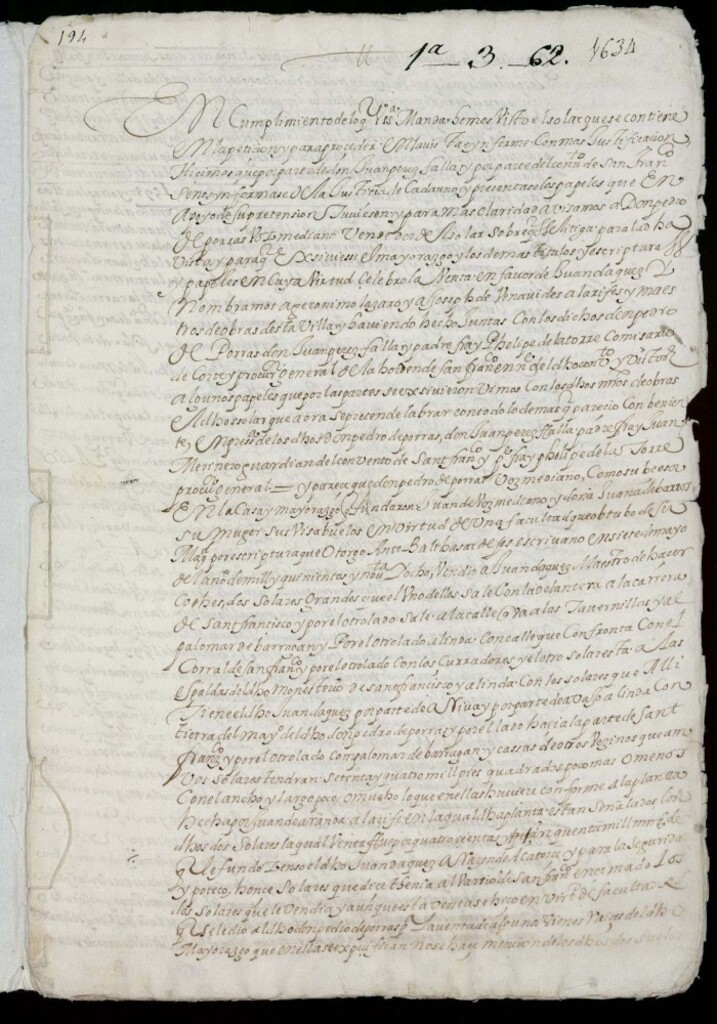 194
1ª 3. 62. 1634
En Cumplimiento de lo q Vsª Manda hemos Visto el solar que se contiene
En la peticion y para proceder En la Vista e ynforme Con mas Justificacion
Hicimos que por parte de don Juan perez fallay por parte del conto de San Fran
se nos ynformase de la Justicia de Cada uno y presentase los papeles que En
Apoyo de su pretension tuviesen y para mas claridad avisamos a Don pedro
de porras Vozmediano Vendedor de el solar sobre q se litiga para la dha
Vista y para q Exsiviese el mayorazgo y los demas titulos y escriptura
y papeles En Cuya Virtud Celebro la Venta en favor de Juan daquez Y
Nombramos a geronimo lazaro y a Joseph de Venavides alarifes y maes
tros de obras desta Villa y haviendo hecho Juntas Con los dichos don pedro
de Porras don Juan perez fallay padre fray Phelipe de la torre Comisario
de Corte y procur general de la horden de san franco en ne del dho conto y Visto
algunos papeles que por las partes se exsivieron Vimos Con los dhos mros de obras
el dho solar que aora se pretende labrar con todo lo demas q parecio Conbenien
te, En presa de los dhos don pedro de porras, don Juan perez falla padre fray Juan
Merinero guardian del convento de Sant franco y po fray phelipe de la Torre
procur general = y parece que don pedro de porras Vozmediano, Como subcesor
En la Casa y mayorazgo q fundaron Juan de Vozmediano y doña Juana de barros
su muger sus Visabuelos En virtud de Una facultad que obtubo de su
Magd por escriptura que Otorgo Ante Balthasar de Jos escrivano en siete de mayo
del año de mill y quinientos y nobta Y ocho, Vendio a Juan daquez Maestro de hacer
Coches, dos solares grandes que el Uno dellos sale Con la delantera a la carrera
de Sant francisco y por el otro lado sale a la calle q va a las Tavernillas y al
palomar de barragan y Por el otro lado alinda Con calle que Confronta Con el
Corral de san franco y por el otro lado Con los Curradores y el otro solar esta a las
Espaldas del dho monesterio de sant francisco y alinda Con los solares que Alli
tiene el dho Juan daquez por parte de arriva y por parte de avaxo alinda Con
tierra del mayo del dho don pedro de porras y por el lado hacia la parte de Sant
franco y por el otro lado Con palomar de barragan y cassas de otros Vezinos que am
vos solares tendran setenta y quatro mill pies quadrados poco mas o menos
Con el ancho y largo poco o mucho lo que en ellos huviere conforme a la planta
hecha por Juan de aranda alarife En la qual dha planta estan señalados los
dhos dos solares la qual Venta fue por quatrocientas y cinquenta mill mrs de
Que fundo Zenso el dho Juan daquez a Razon de a catorce y para la seguridad
y poteco, honce solares que dice thenia al Varrio de San franco en cima de los
dos solares que le vendia y aunque esta venta se hiço en virtd de facultad Rl
Que se dio al dho don pedro de porras pa la venta de algunos Vienes Raices del dho
Mayorazgo que en ella se expecifican no se haze mencion de los dhos dos suelos